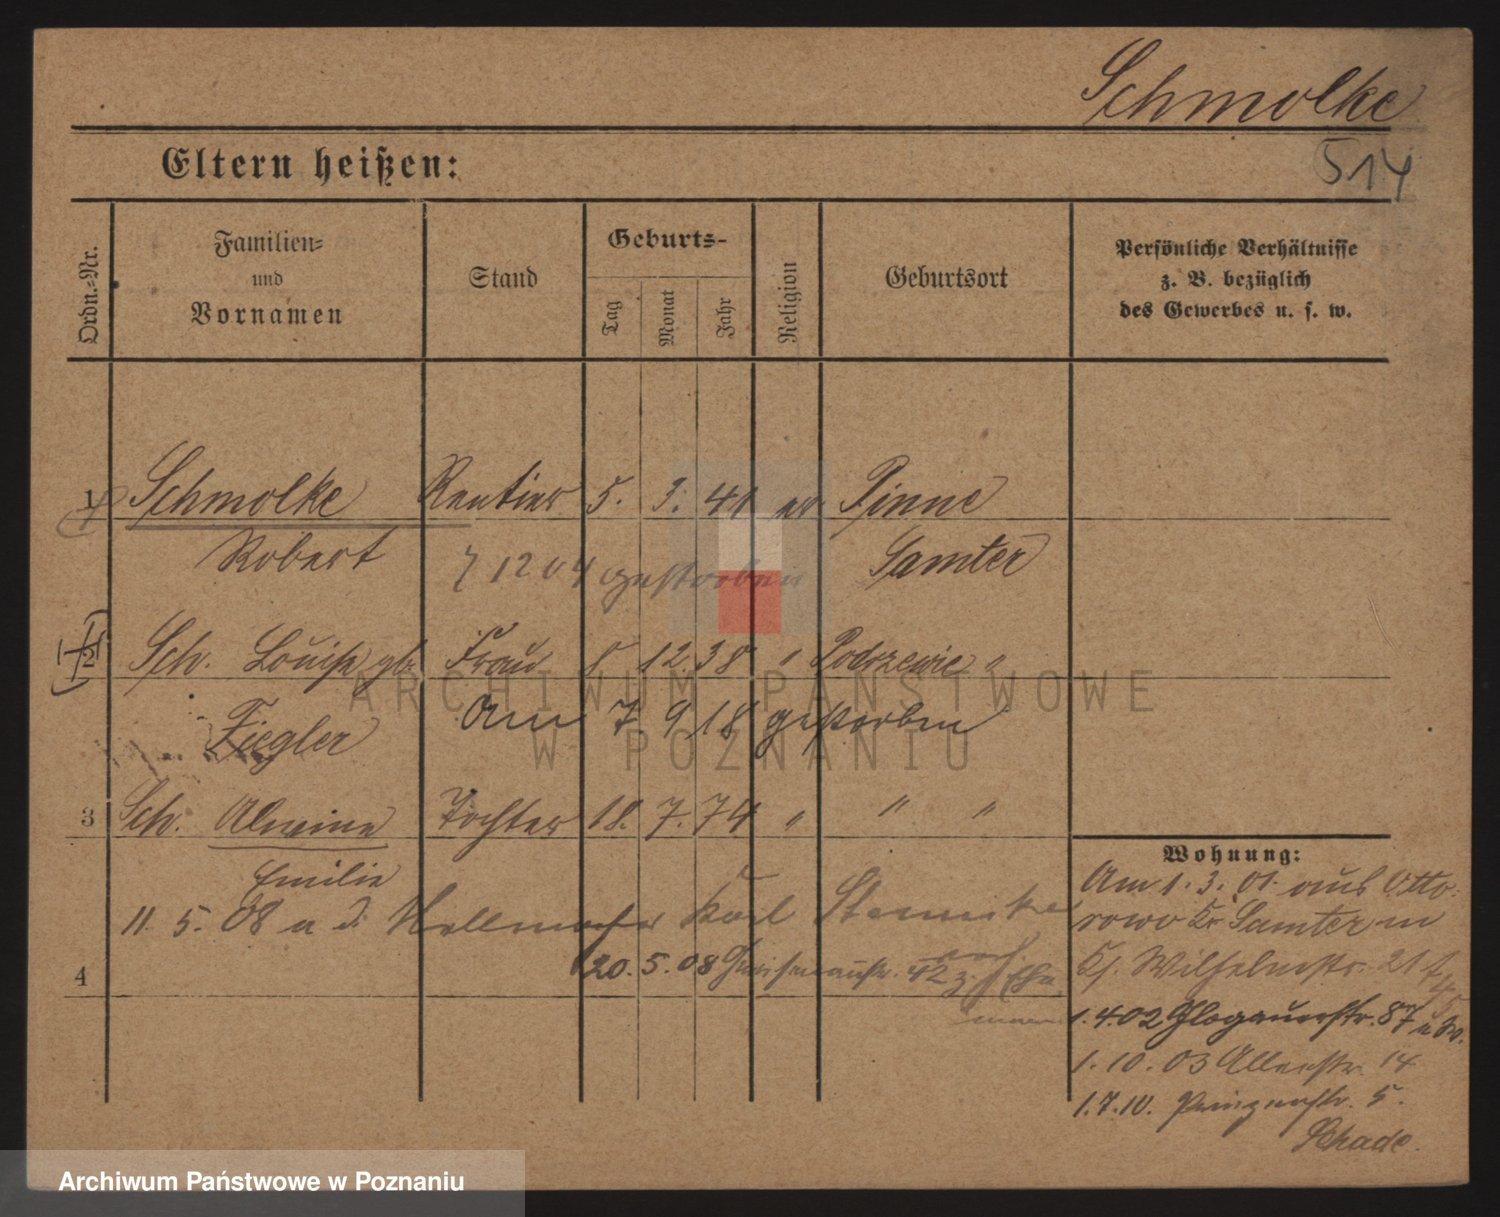 Schmolke
514
Eltern heißen:
Ordn.-Nr.
Familien-
und
Vornamen
Stand
Geburts-
Tag
Monat
Jahr
Religion
Geburtsort
Persönliche Verhältnisse
z. B. bezüglich
des Gewerbes u. s. w.
1 Schmolke Rentier 5. 3. 41 ev Pinne
Robert 7 12 04 gestorben Samter
2 Sch. Louise gb. Frau 8 12. 38 " Podrzewie "
Ziegler Am 7 9 18 gestorben
3 Sch. Alwine Tochter 18. 7. 74 " " "
Emilie
11. 5. 08 a d. Karl
4 20. 5. 08 Gneisenaustr. 42
Wohnung:
Am 1. 3. 01. aus Otto-
rowo Kr Samter in
Wilhelmstr. 21
1.4.02 Glogauerstr. 87
1. 10. 03 Allerstr. 14
1.7.10. Prinzenstr. 5.
Schade.
ARCHIWUM PAŃSTWOWE
W POZNANIU
Archiwum Państwowe w Poznaniu